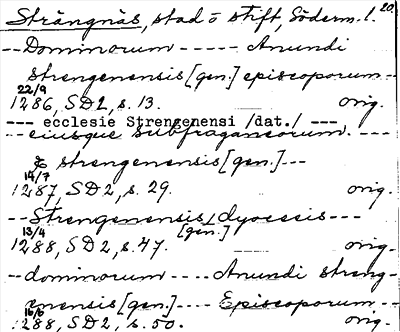 Strängnäs, stad o stift, Söderm. l. 20
--Dominorum ----- Anundi
strengenensis [gen.] episcoporum--
22/9
1286, SD2, s. 13. orig.
--- ecclesie Strengenensi /dat./ ---
--eiusque subfraganeorum. ---
& strengenensis [gen.]---
14/7
1287, SD2, s. 29. orig.
--Strengenensis dyocesis---
13/4 [gen.]
1288, SD2, s. 47. orig.
--dominorum ---- Anundi streng-
enensis [gen.]---- Episcoporum --
16/6
1288, SD2, s. 50. orig.